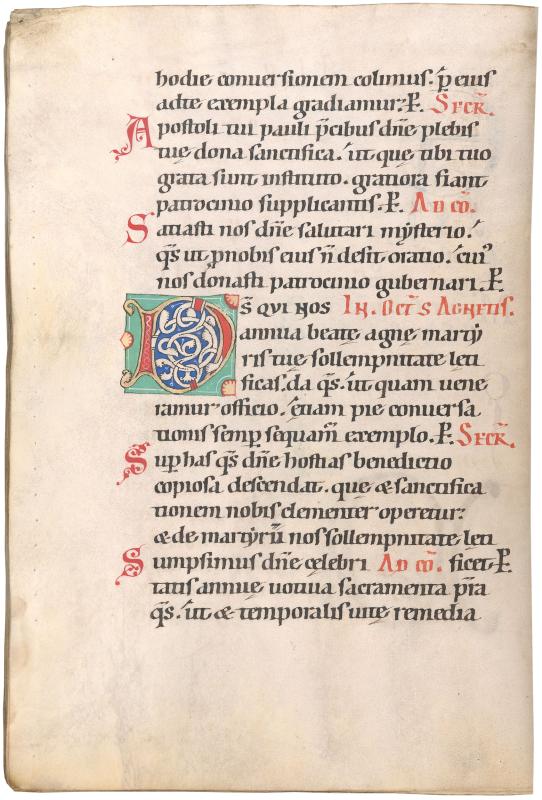 hodie conuersionem colimus. ꝑ eius
adte exempla gradiamur. ꝑ. SECR̄.
Apostoli tui pauli p̄cibus dn̄e plebis
tuę dona sanctifica. ut que tibi tuo
grata sunt instituto. gratiora fiant
patrocinio supplicantis. ꝑ. AD CŌ.
Satiasti nos dn̄e salutari mysterio.
qs̄ ut ꝓnobis eius n̄ desit oratio. cuiꝰ
nos donasti patrocinio gubernari. ꝑ
DS̄ QVI NOS IN. OCT̄S AGNETIS.
annua beate agne martẏ
ris tue sollempnitate leti
ficas. da qs̄. ut quam uene
ramur officio. etiam pie conuersa
tionis semꝑ sequam̄ exemplo. ꝑ. SECR̄.
Suꝑ has qs̄ dn̄e hostias benedictio
copiosa descendat. que & sanctifica
tionem nobis clementer operetur:
& de martyrū nos sollempnitate leti
Sumpsimus dn̄e celebri AD CŌ. ficet. ꝑ.
tatis annue uotiua sacramenta p̄ra
qs̄. ut & temporalis uite remedia